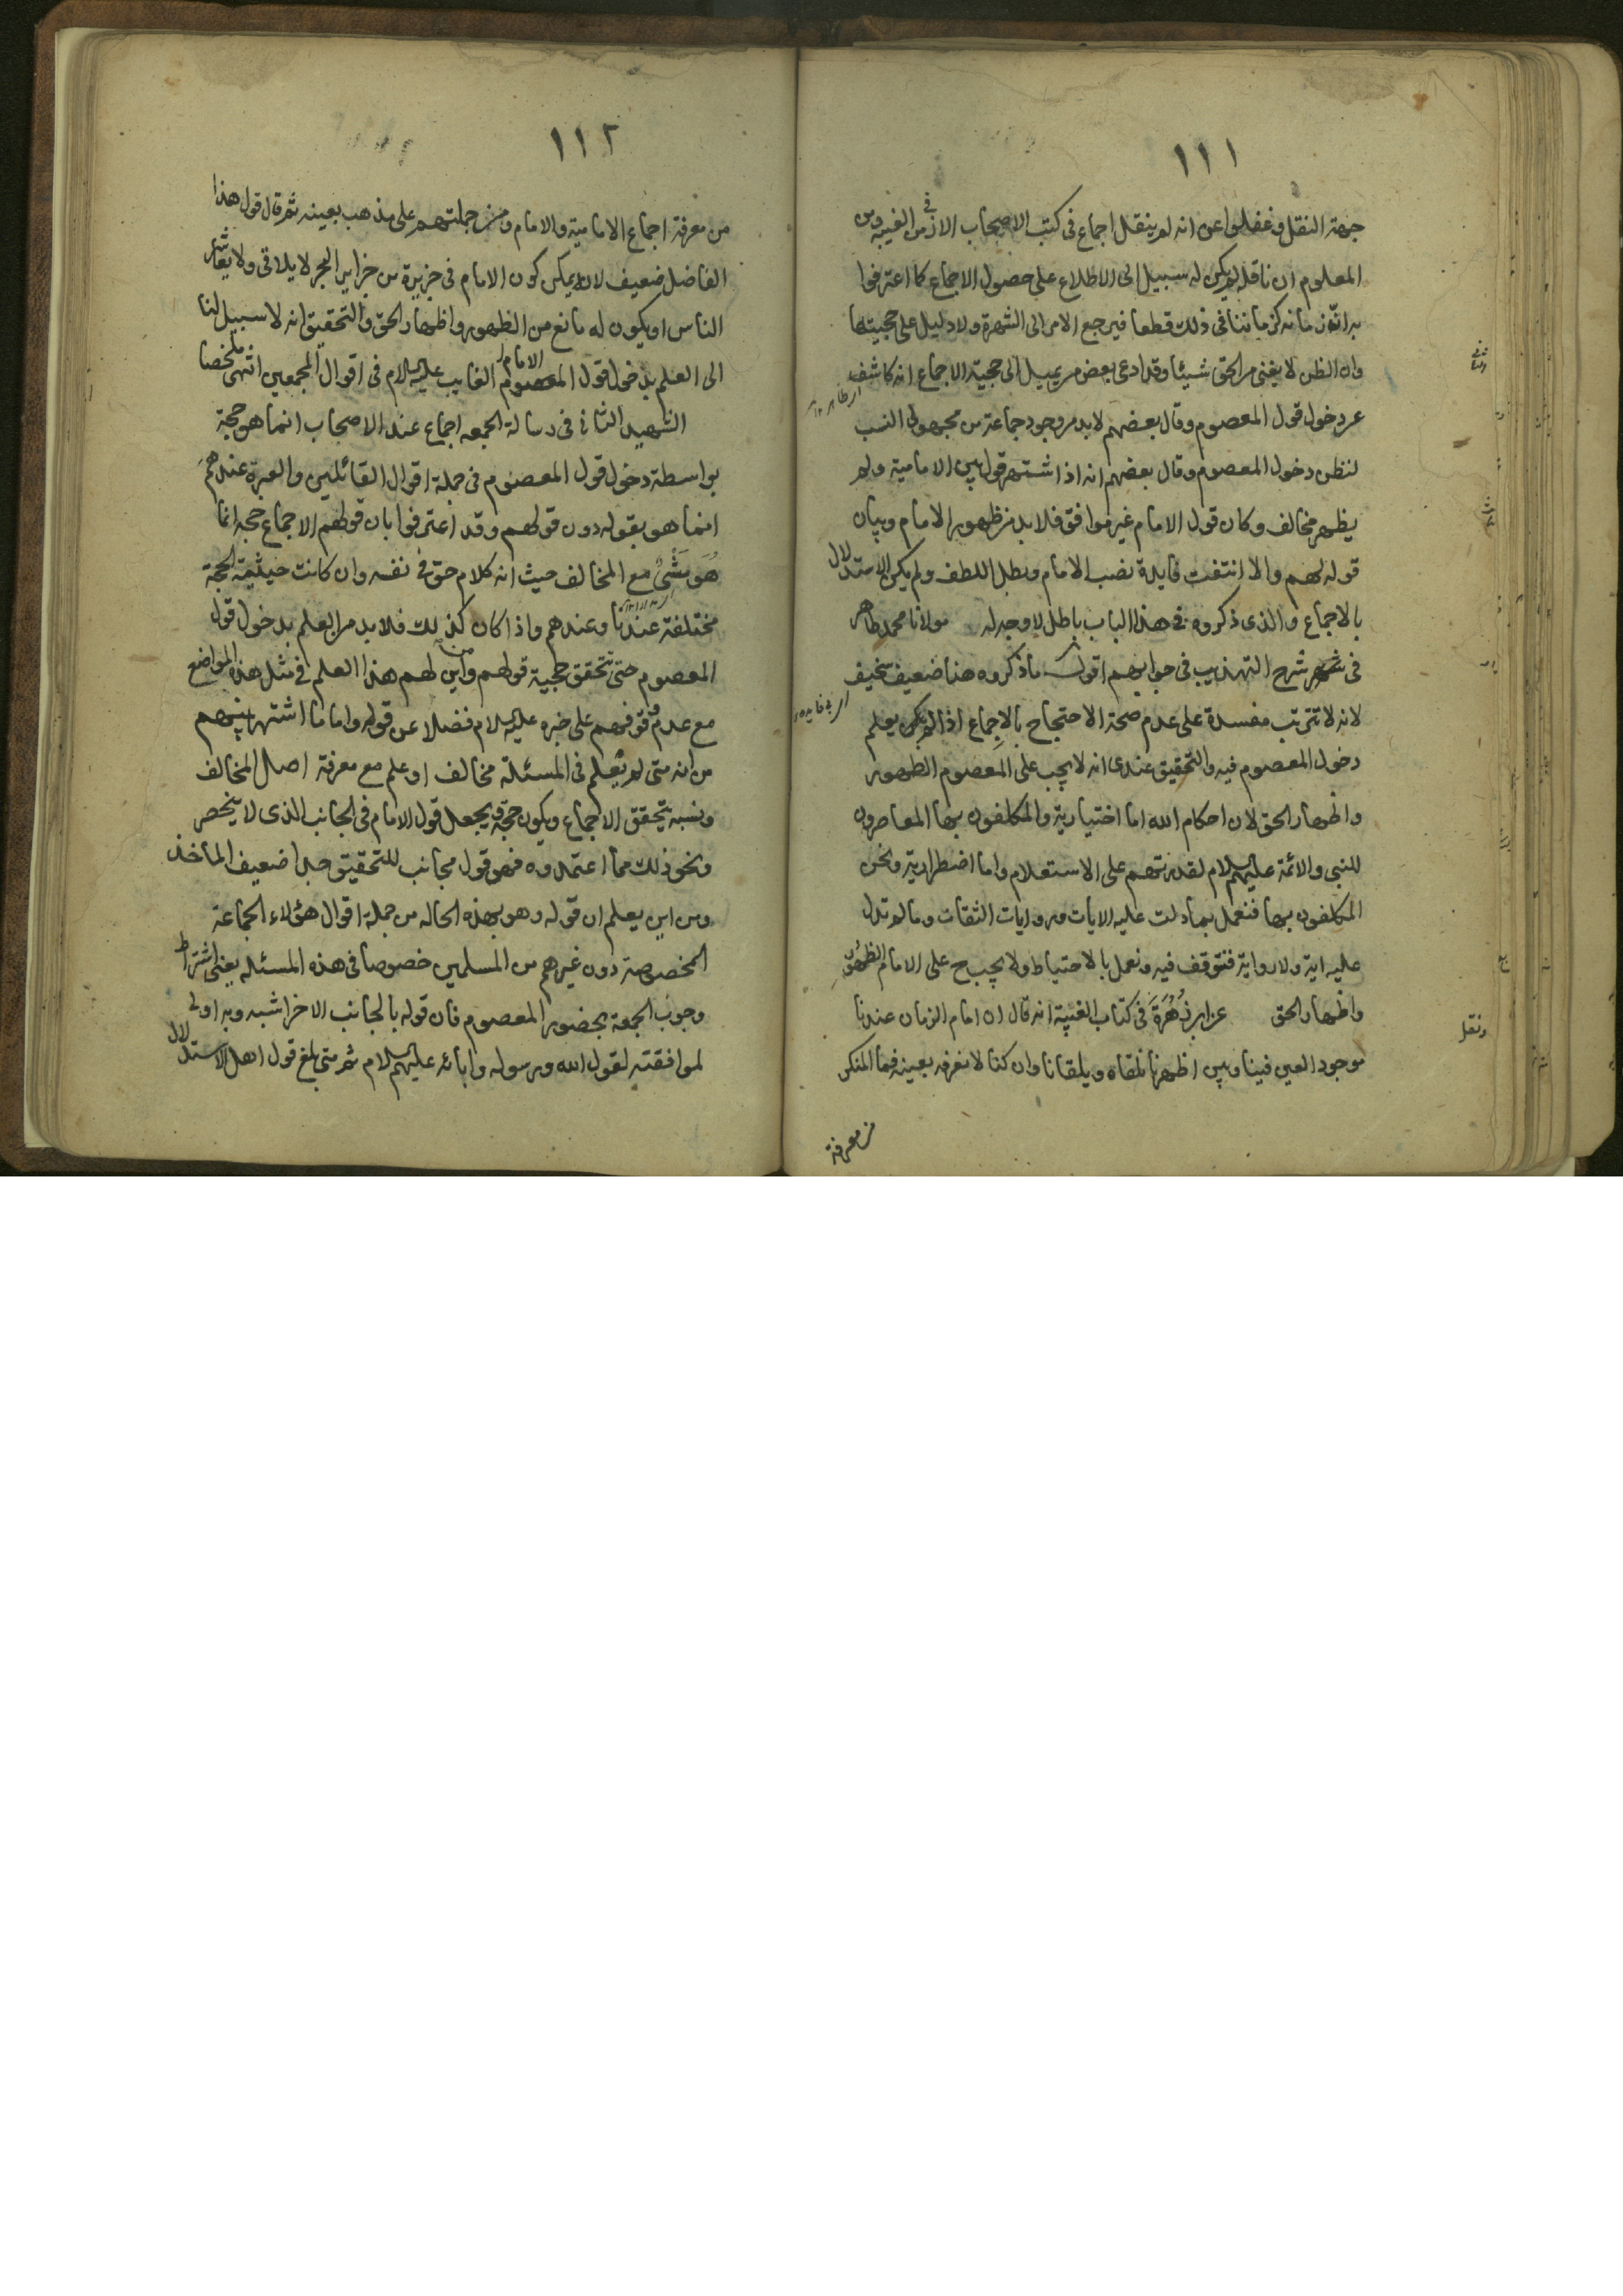 ١١١
جهة النقل وغفلوا عن انه لم ينقل اجماع فى كتب الاصحاب الا فى زمن الغيبه ومن
المعلوم ان ناقله لم يكن له سبيل الى الاطلاع على حصول الاجماع كما اعترفوا
به اذ زمانه كزماننا فى ذلك قطعا فيرجع الامر الى الشهرة ولا دليل على حجيتها
وان الظن لا يغنى من الحق شيئا وقد ادعى بعض من يميل الى حجية الاجماع انه كاشف
عن دخول قول المعصوم وقال بعضهم لا بد من وجود جماعة من مجهولى النسب
لنظن دخول المعصوم وقال بعضهم انه اذا اشتهر قول بين الامامية ولم
يظهر مخالف وكان قول الامام غير موافق فلا بد من ظهور الامام وبيان
قوله لهم والا انتفت فايدة نصب الامام وبطل اللطف ولم يكن الاستدلال
بالاجماع والذى ذكروه فى هذا الباب باطل لا وجه له مولانا محمد طاهر
فى شرح التهذيب فى جوابهم اقول ما ذكروه هنا ضعيف سخيف
لانه لا تترتب مفسدة على عدم صحة الاحتجاج بالاجماع اذا لم يكن يعلم
دخول المعصوم فيه والتحقيق عندى انه لا يجب على المعصوم الظهور
واظهار الحق لان احكام الله اما اختيارية والمكلفون بها المعاصرون
للنبى والائمة عليهم السلام لقدرتهم على الاستعلام واما اضطرارية ونحن
المكلفون بها فنعمل بما دلت عليه الايات وروايات الثقات وما لم تدل
عليه اية ولا رواية فنتوقف فيه ونعمل بالاحتياط ولا يجب ح على الامام الظهور
واظهار الحق عن ابن زُهُرَة فى كتاب الغنية انه قال ان امام الزمان عندنا
موجود العين فينا وبين اظهرنا نلقاه ويلقانا وان كنا لا نعرفه بعينه فما المنكر
من معرفة
ونقل
١١٢
من معرفة اجماع الامامية والامام من جملتهم على مذهب بعينه ثم قال قول هذا
الفاضل ضعيف لانه يمكن كون الامام فى جزيرة من جزاير البحر لا يلاقى ولا يعاشر
الناس او يكون له مانع من الظهور واظهار الحق والتحقيق انه لا سبيل لنا
الى العلم بدخول قول الامام المعصوم الغايب عليه السلام فى اقوال المجمعين انتهى ملخصا
الشهيد الثانى فى رسالة الجمعه اجماع عند الاصحاب انما هو حجة
بواسطة دخول قول المعصوم فى جملة اقوال القائلين والعبرة عندهم
انما هو بقوله دون قولهم وقد اعترفوا بان قولهم الاجماع حجة انما
هُوَ مَشْىٌ مع المخالف حيث انه كلام حق فى نفسه وان كانت حيثية الحجة
مختلفة عندنا وعندهم واذا كان كذلك فلا بد من العلم بدخول قول
المعصوم حتى تتحقق حجية قولهم واين لهم هذا العلم فى مثل هذه المواضع
مع عدم وقوفهم على خبره عليه السلام فضلا عن قوله واما ما اشتهر بينهم
من انه متى لم يعلم فى المسئلة مخالف او علم مع معرفة اصل المخالف
ونسبه يتحقق الاجماع ويكون حجة ويجعل قول الامام فى الجانب الذى لا ينحصر
ونحو ذلك مما اعتمدوه فهو قول مجانب للتحقيق جدا ضعيف الماخذ
ومن اين يعلم ان قوله وهو بهذه الحاله من جملة اقوال هؤلاء الجماعة
المخصوصة دون غيرهم من المسلمين خصوصا فى هذه المسئله يعنى اشتراط
وجوب الجمعة بحضور المعصوم فان قوله بالجانب الاخر اشبه وبه اولى
لموافقته لقول الله ورسوله وابائه عليهم السلام ثم متى بلغ قول اهل الاستدلال